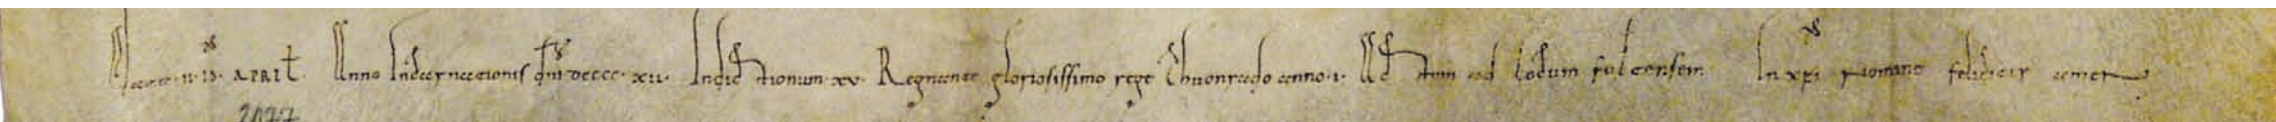 Data · II · ID · APRIL · Anno Incarnationis dni DCCCC · XII · Indictionum · XV · Regnante gloriosissimo rege Chuonrado anno · I · Actum ad lodum fulcensem In xpi nomine feliciter amen
2077